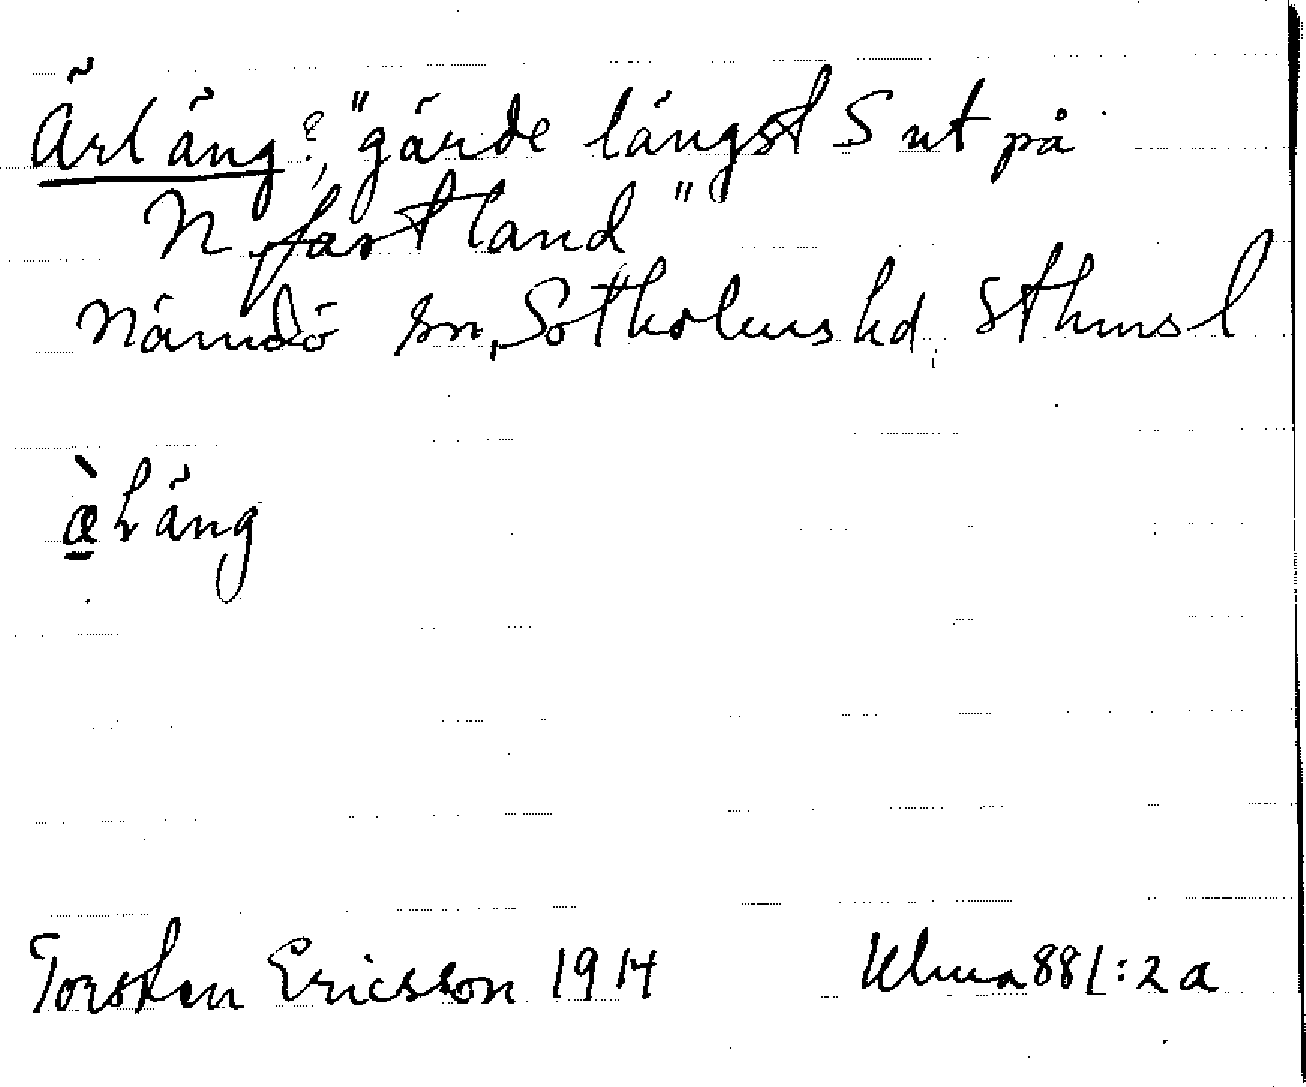 Ärläng?, "gärde längst S ut på
N fastland"
Nämdö sn, Sotholms hd, Sthms l
äläng
Torsten Ericsson 1914 Ulma 881:2a